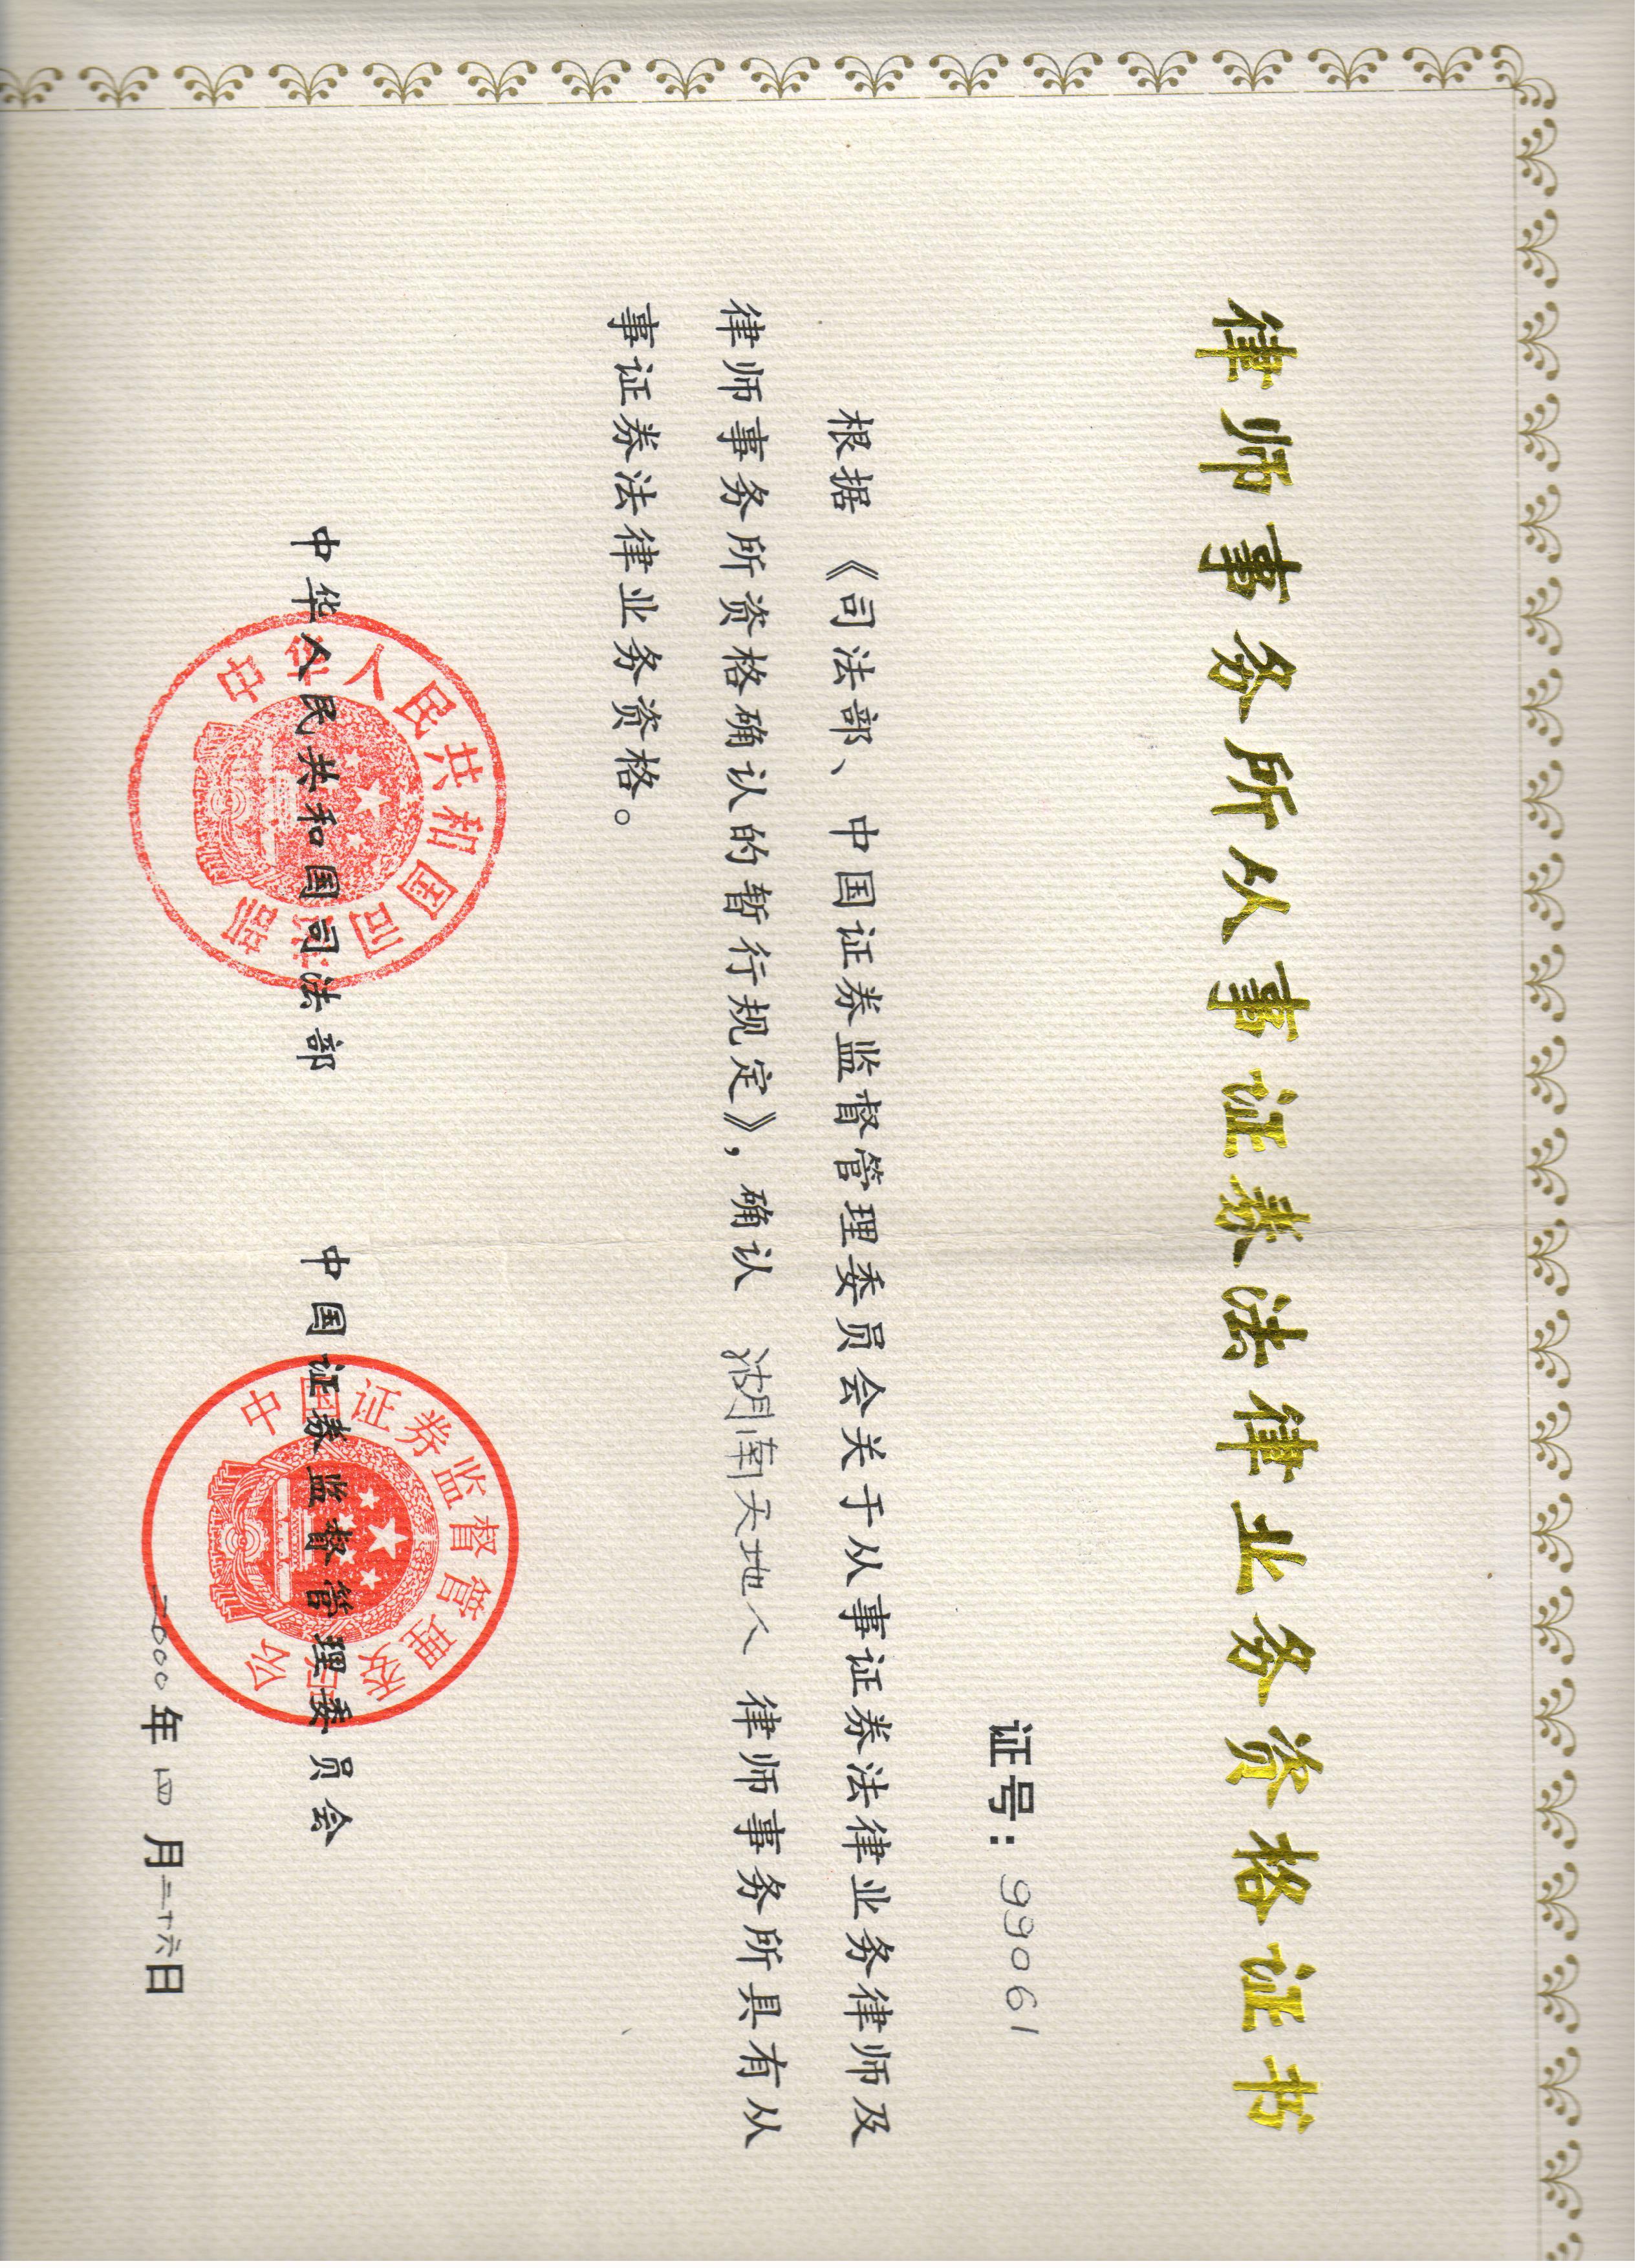 律师事务所从事证券法律业务资格证书
证号：99061
根据《司法部、中国证券监督管理委员会关于从事证券法律业务律师及
律师事务所资格确认的暂行规定》，确认 湖南天地人 律师事务所具有从
事证券法律业务资格。
中华人民共和国司法部 中国证券监督管理委员会
中华人民共和国司法部
中国证券监督管理委员会
二000年四月二十六日